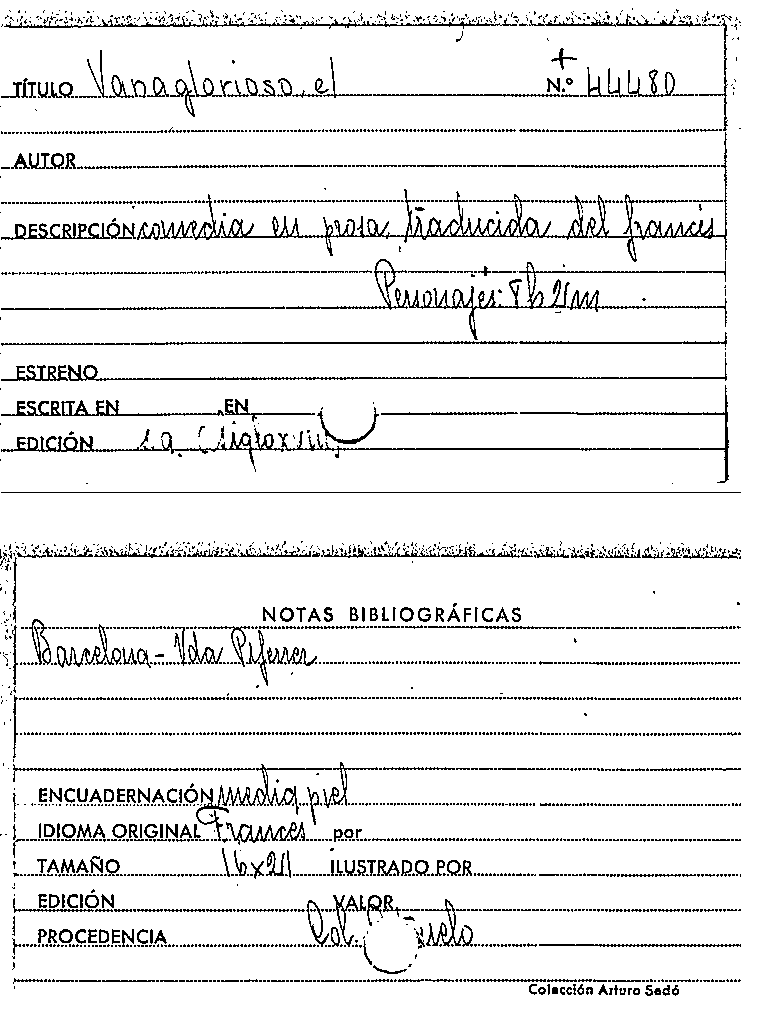 +
TÍTULO Vanaglorioso, el N.º 44480
AUTOR
DESCRIPCIÓN comedia en prosa, traducida del francés
Personajes: 8h 2m
ESTRENO
ESCRITA EN EN
EDICIÓN s.a. (siglo XVIII)
NOTAS BIBLIOGRÁFICAS
Barcelona - Vda Piferrer
ENCUADERNACIÓN media piel
IDIOMA ORIGINAL Francés por
TAMAÑO 16x21 ILUSTRADO POR
EDICIÓN VALOR
PROCEDENCIA Col.
Colección Arturo Sedó